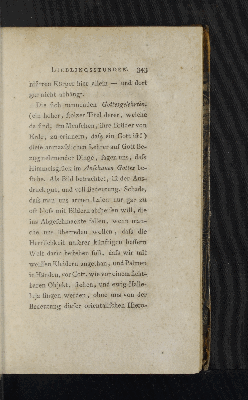 LIEBLINGSSTUNDEN. 343
nisirten Körper hier allein — und dort
gar nicht anhängt.
Die sich nennenden Gottesgelehrten,
(ein hoher, stolzer Titel derer, welche
da sind, den Menschen, ihre Brüder von
Koth, zu erinnern, dass ein Gott ist!)
diese anmasslichen Kenner auf Gott Be-
zug nehmender Dinge, sagen uns, dass
Himmelreich im Anschauen Gottes be-
stehe. Als Bild betrachtet, ist der Aus-
druck gut, und voll Bedeutung. Schade,
dass man uns armen Laien nur gar zu
oft bloss mit Bildern abspeisen will, die
ins Abgeschmackte fallen, wenn man
uns überreden
Herrlichkeit unsrer künftigen bessern
Welt darin bestehen soll, dass wir mit
weissen Kleidern angethan, und Palmen
in Händen, vor Gott, wie vor einem sicht-
baren Objekt, stehen, und ewig Halle-
luja singen werden, ohne uns von der
Bedeutung dieser orientalischen Hiero-